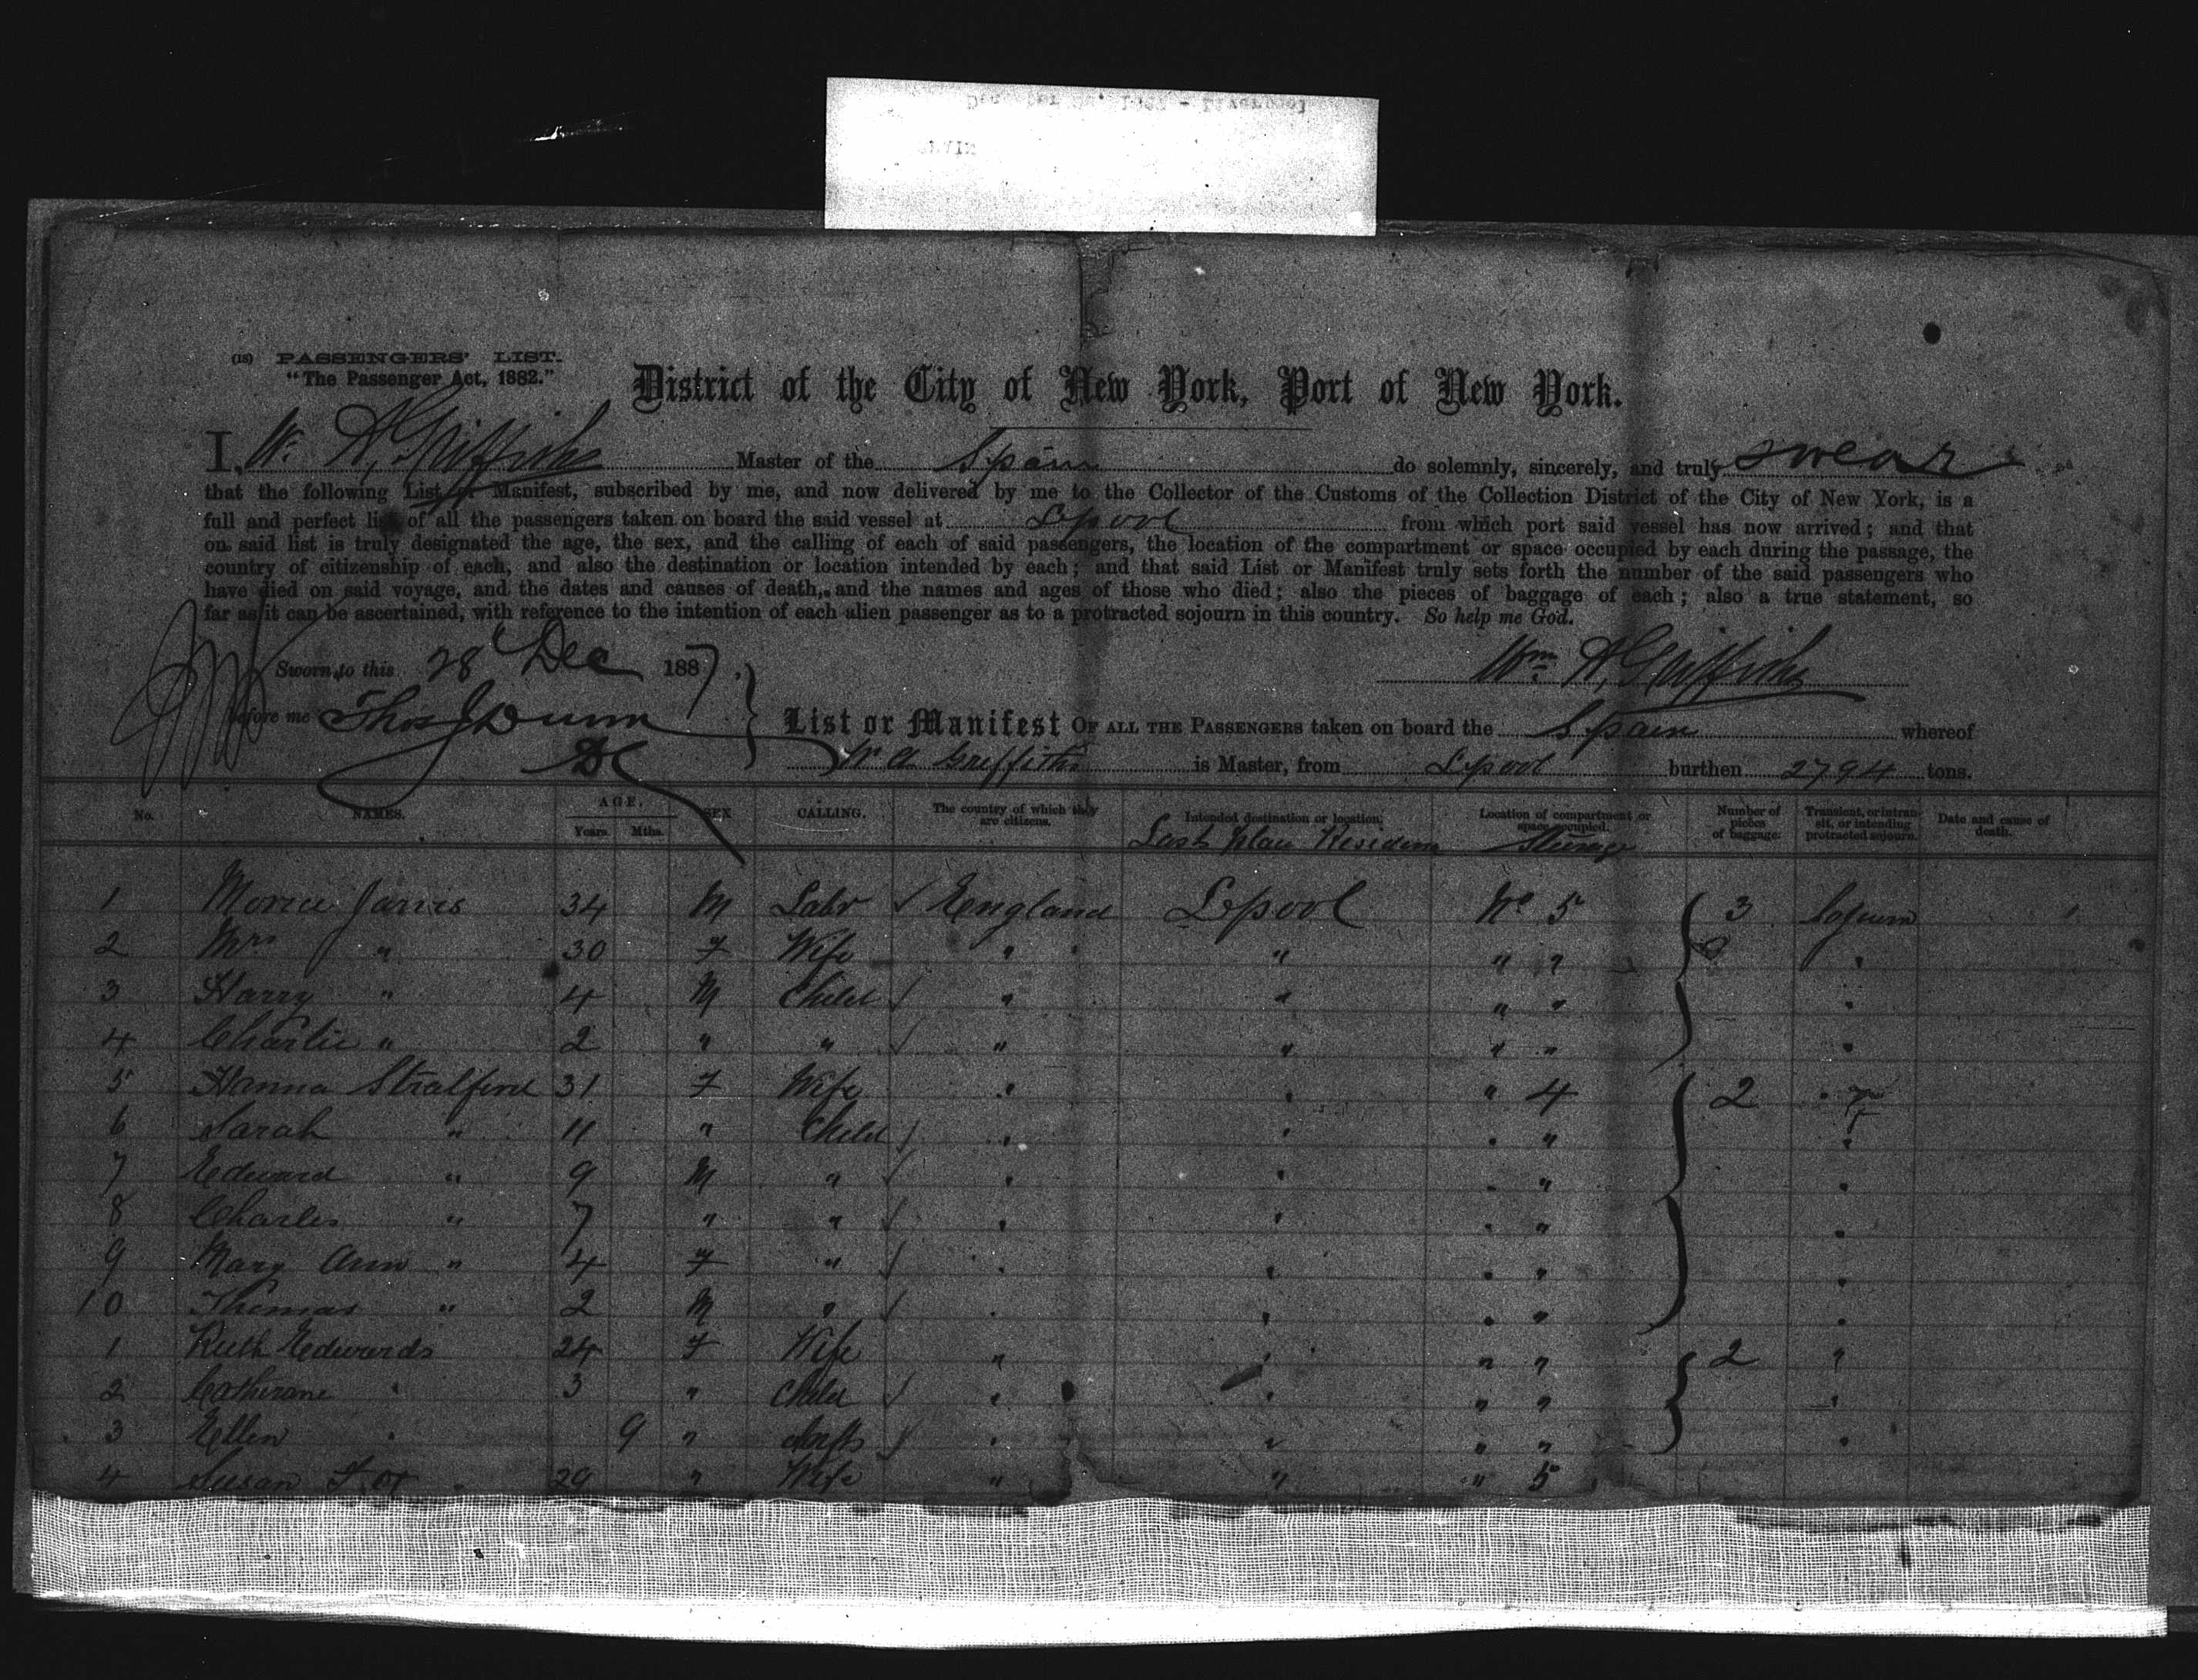 (18) PASSENGERS' LIST.
"The Passenger Act, 1882."
District of the City of New York, Port of New York.
I, Wm A, Griffiths Master of the Spain do solemnly, sincerely, and truly swear
that the following List or Manifest, subscribed by me, and now delivered by me to the Collector of the Customs of the Collection District of the City of New York, is a
full and perfect list of all the passengers taken on board the said vessel at Lpool from which port said vessel has now arrived; and that
on said list is truly designated the age, the sex, and the calling of each of said passengers, the location of the compartment or space occupied by each during the passage, the
country of citizenship of each, and also the destination or location intended by each; and that said List or Manifest truly sets forth the number of the said passengers who
have died on said voyage, and the dates and causes of death, and the names and ages of those who died; also the pieces of baggage of each; also a true statement, so
far as it can be ascertained, with reference to the intention of each alien passenger as to a protracted sojourn in this country. So help me God.
Sworn to this 28 Dec 1887.
Wm A, Griffiths
before me Thos J Dunn
DC
List or Manifest OF ALL THE PASSENGERS taken on board the Spain whereof
W A Griffiths is Master, from Lpool burthen 2794 tons.
No. NAMES. AGE. Years. Mths. SEX CALLING. The country of which they are citizens. Intended destination or location. Location of compartment or space occupied. Number of pieces of baggage. Transient, or in transit, or intending protracted sojourn. Date and cause of death.
Last place Residence Steerage
1 Jarvis 34 M Labr England Lpool No 5 3 Sojourn
2 Mrs " 30 F Wife " " " " "
3 Harry " 4 M Child " " " " "
4 Charlie " 2 " " " " " " "
5 Hanna 31 F Wife " " " 4 2 "
6 Sarah " 11 " Child " " " " "
7 Edward " 9 M " " " " " "
8 Charles " 7 " " " " " " "
9 Mary Ann " 4 F " " " " " "
10 Thomas " 2 M " " " " " "
1 Ruth Edwards 24 F Wife " " " " 2 "
2 Catherane " 3 " Child " " " " "
3 Ellen " 9 " " " " " "
4 Susan Fox 29 " Wife " " " 5